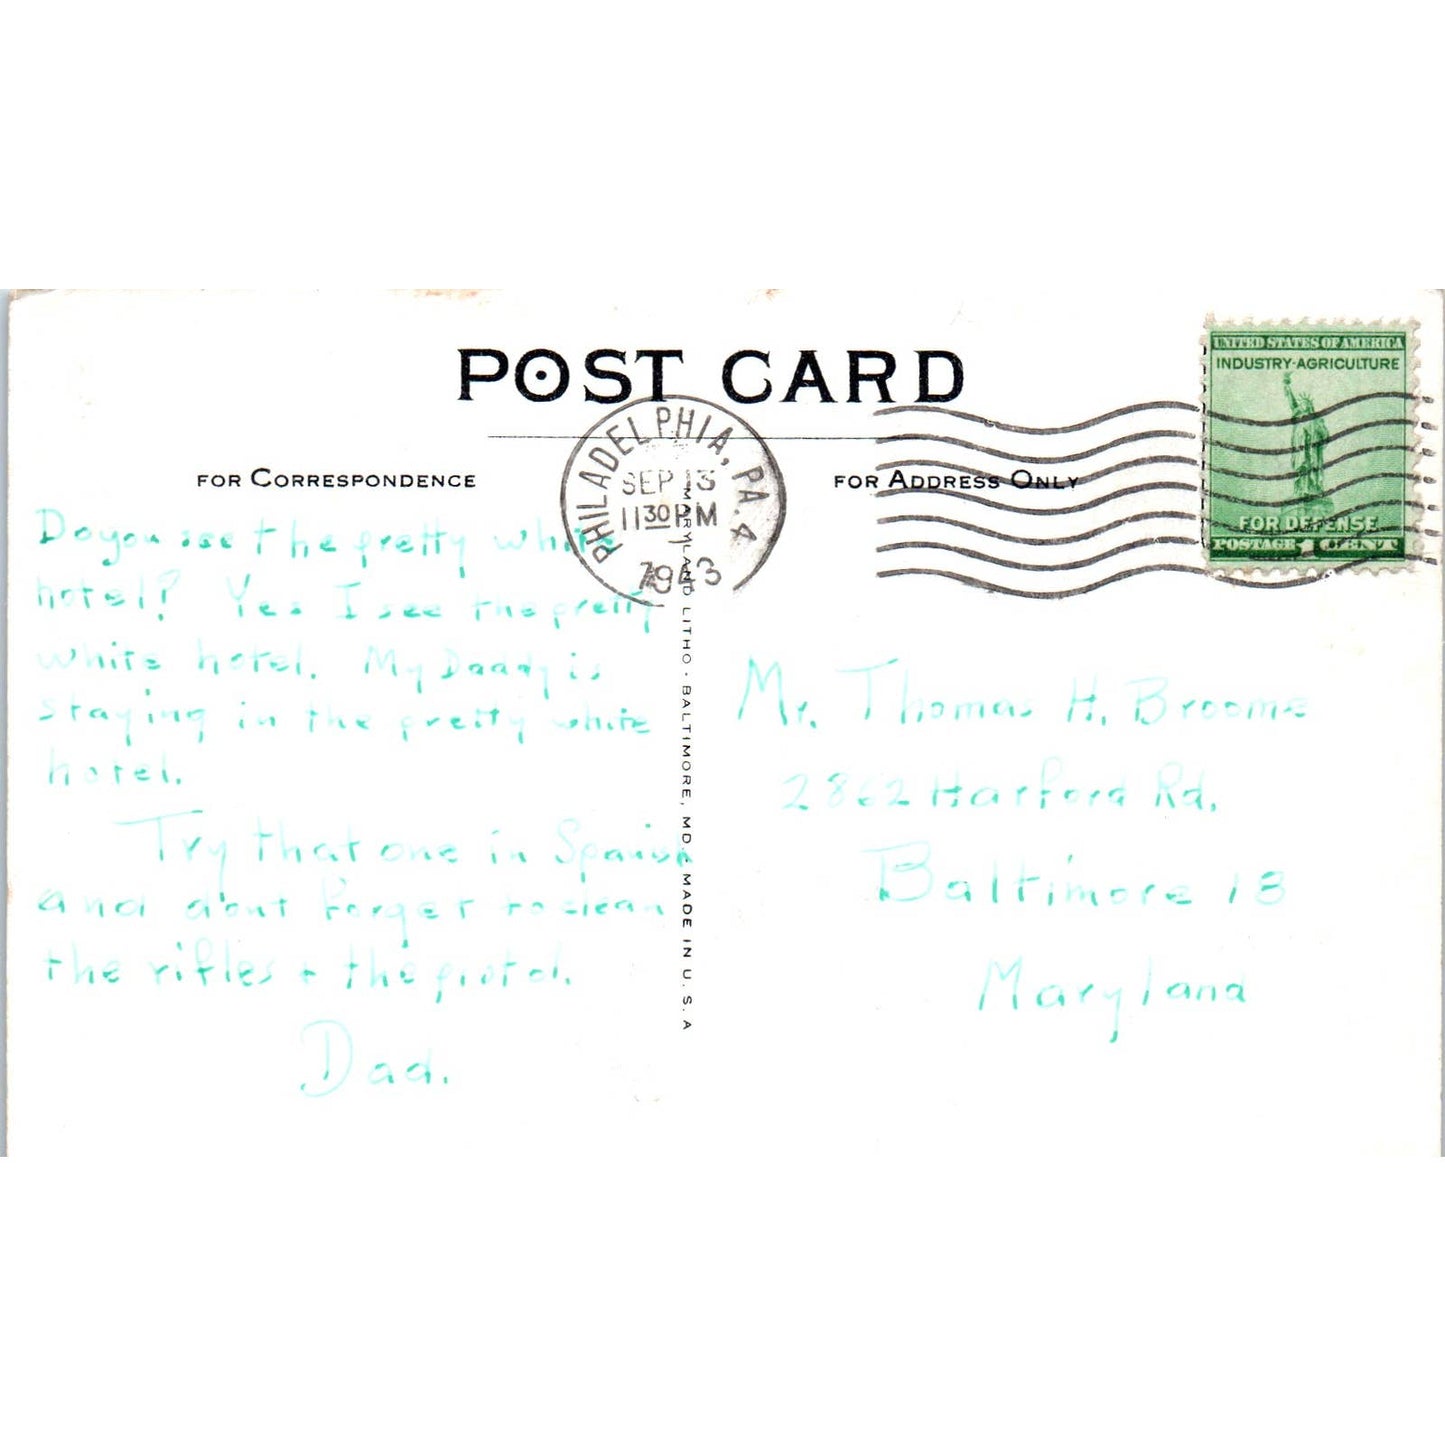 POST CARD
FOR CORRESPONDENCE
FOR ADDRESS ONLY
UNITED STATES OF AMERICA
INDUSTRY-AGRICULTURE
FOR DEFENSE
POSTAGE 1 CENT
PHILADELPHIA, PA. 4
SEP 13
11 30 PM
1943
Do you see the pretty white
hotel? Yes I see the pretty
white hotel. My Daddy is
staying in the pretty white
hotel.
Try that one in Spanish
and dont forget to clean
the rifles + the pistol.
Dad.
MARYLAND LITHO - BALTIMORE, MD. - MADE IN U. S. A
Mr. Thomas H. Broome
2862 Harford Rd.
Baltimore 18
Maryland